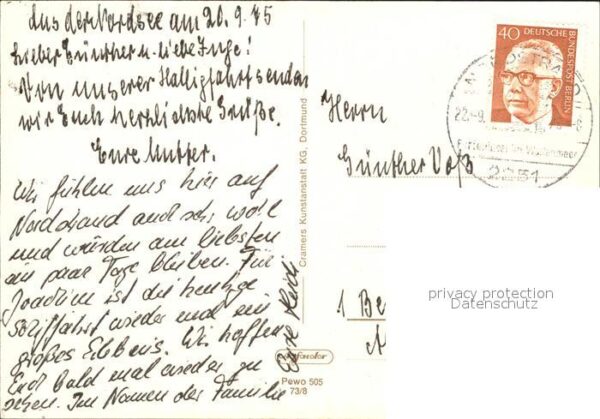 Aus der Nordsee am 20.9.75
Lieber Günther u. liebe Inge!
Von unserer Halligfahrt senden
wir Euch herzlichste Grüße.
Eure Mutter.
Wir fühlen uns hier auf
Nordstrand auch sehr wohl
und würden am liebsten
ein paar Tage bleiben. Für
Joachim ist die heutige
Schiffahrt wieder mal ein
großes Erlebnis. Wir hoffen
Euch bald mal wieder zu
sehen. Im Namen der Familie
Eure Heidi
Cramers Kunstanstalt KG, Dortmund
Pewo 505
73/8
40 DEUTSCHE
BUNDESPOST BERLIN
NORDSTRAND
22.-9.
2251
Herrn
Günther Voß
1 Be
privacy protection
Datenschutz